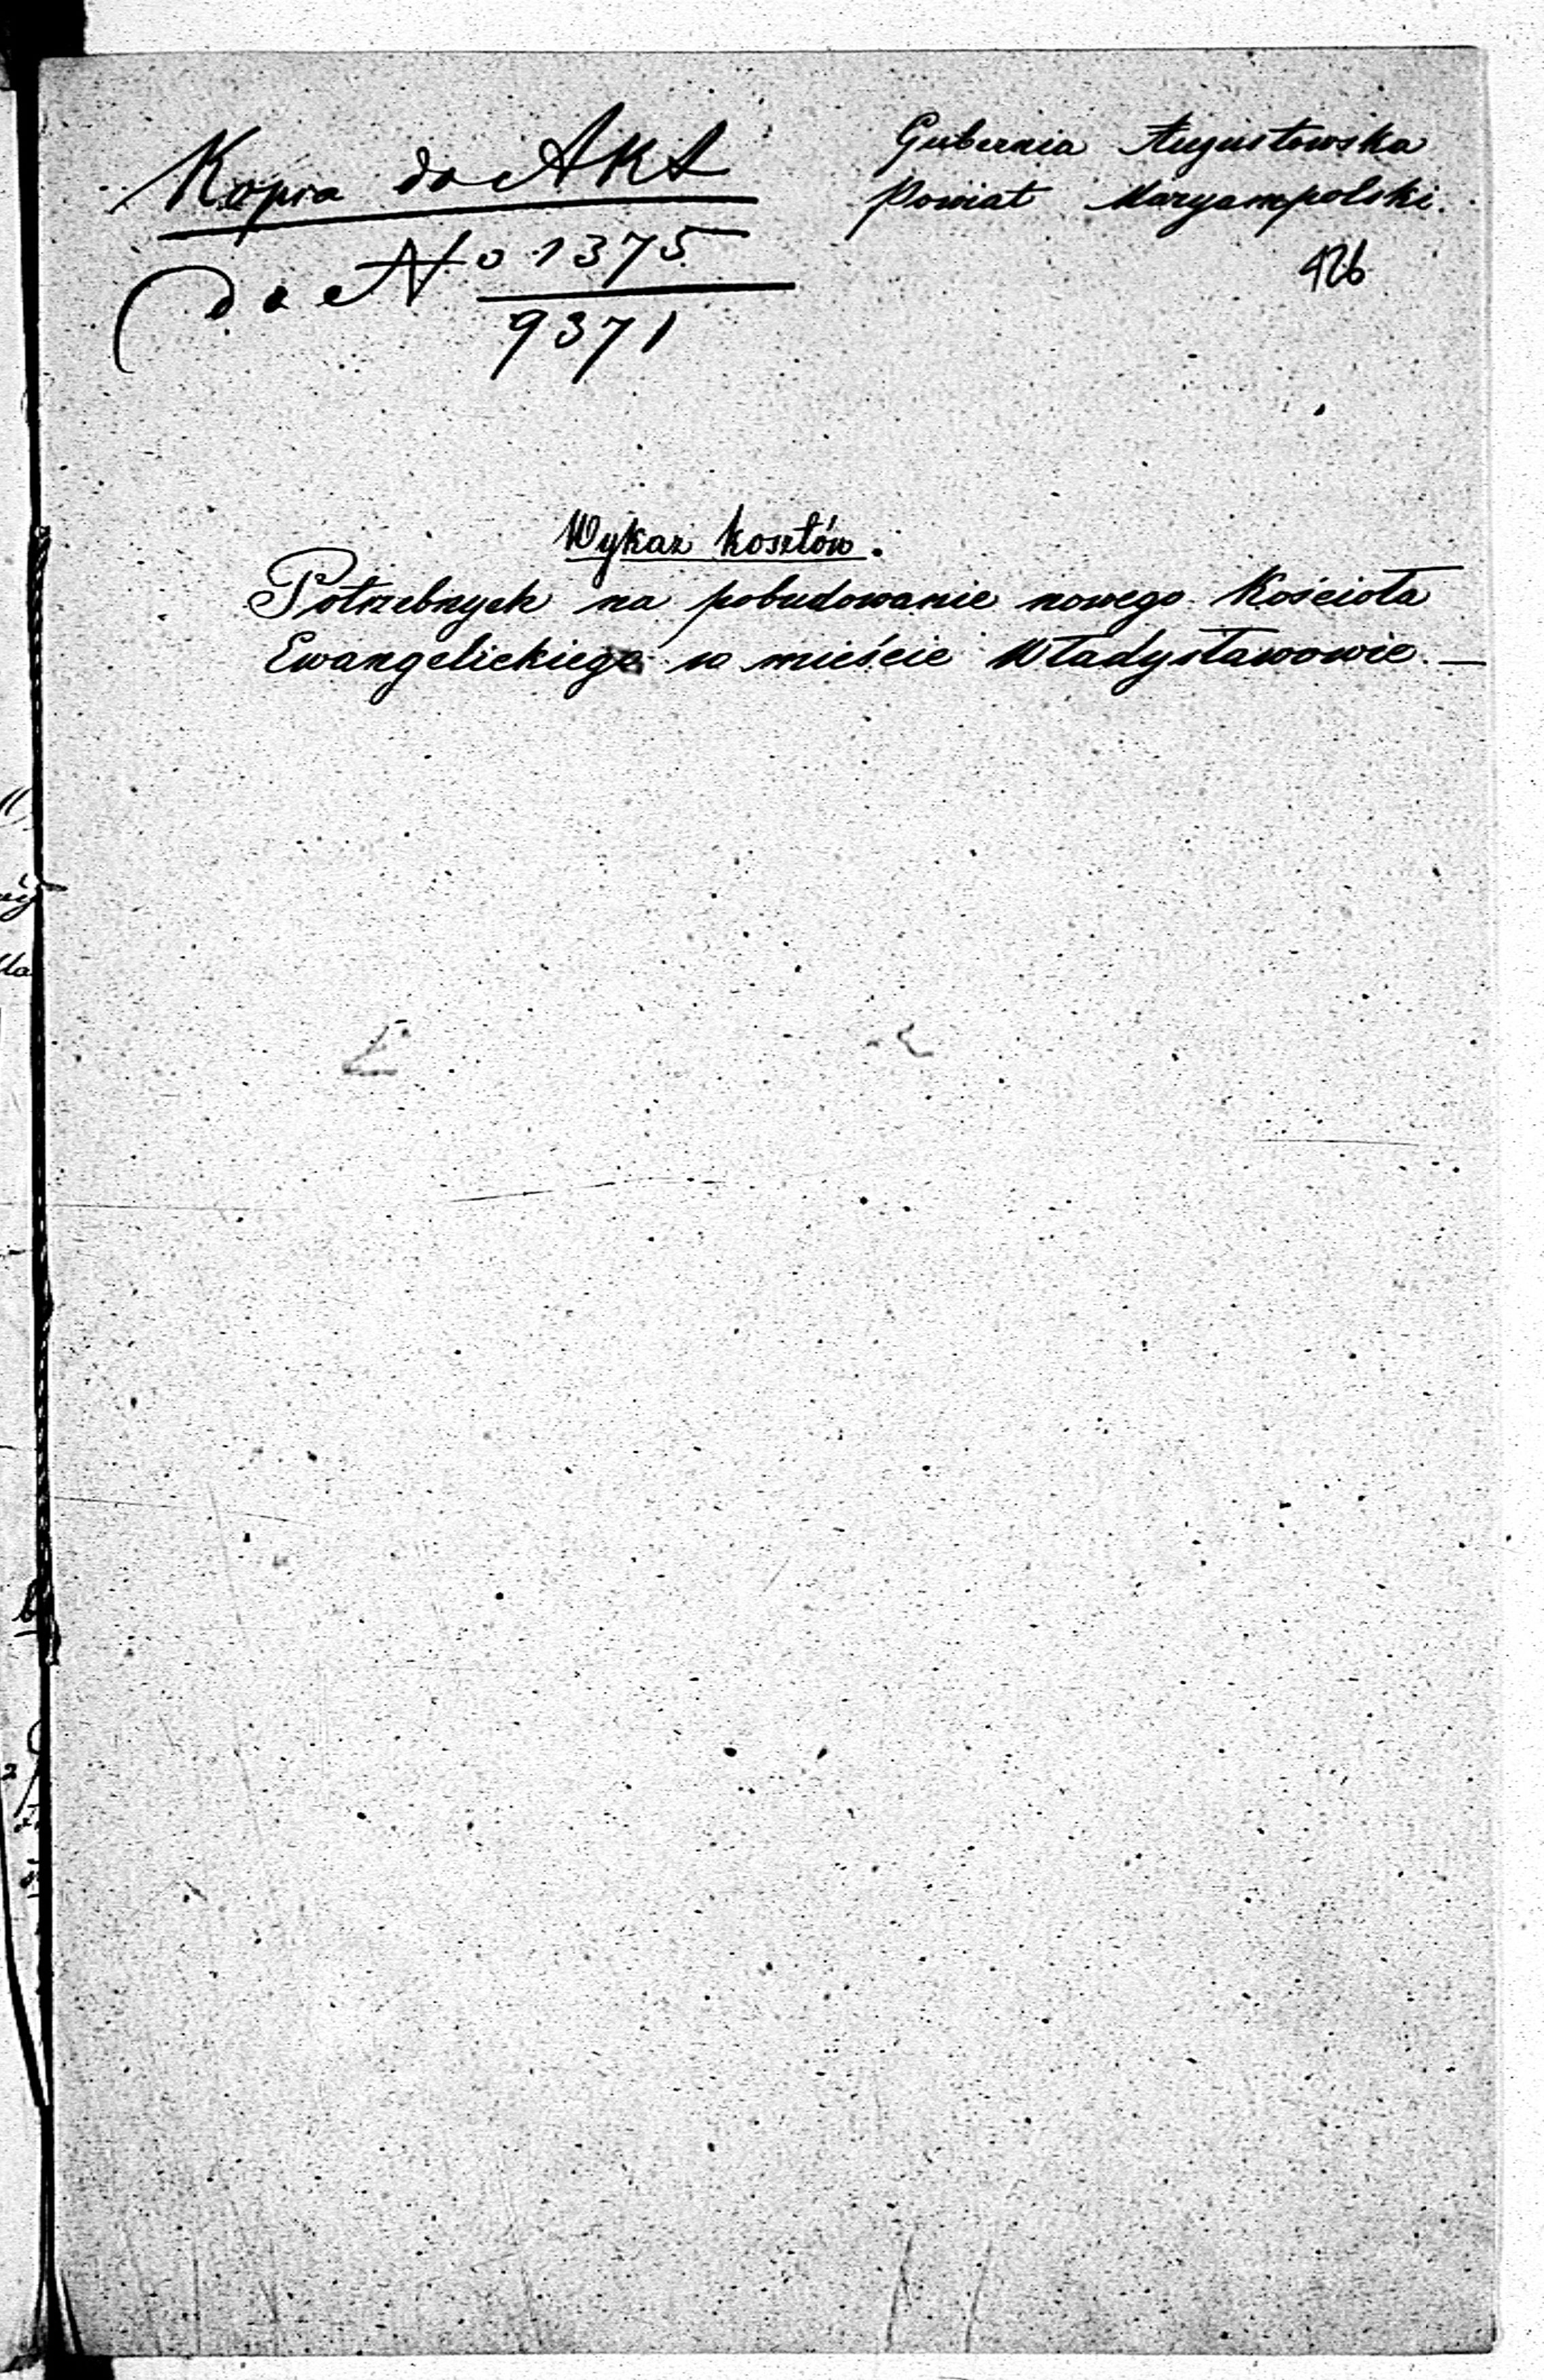 Kopia do Akt
do No 1375
9371
Gubernia Augustowska
Powiat Maryampolski.
426
Wykaz kosztów.
Potrzebnych na pobudowanie nowego Kościoła
Ewangelickiego w mieście Władysławowie. —